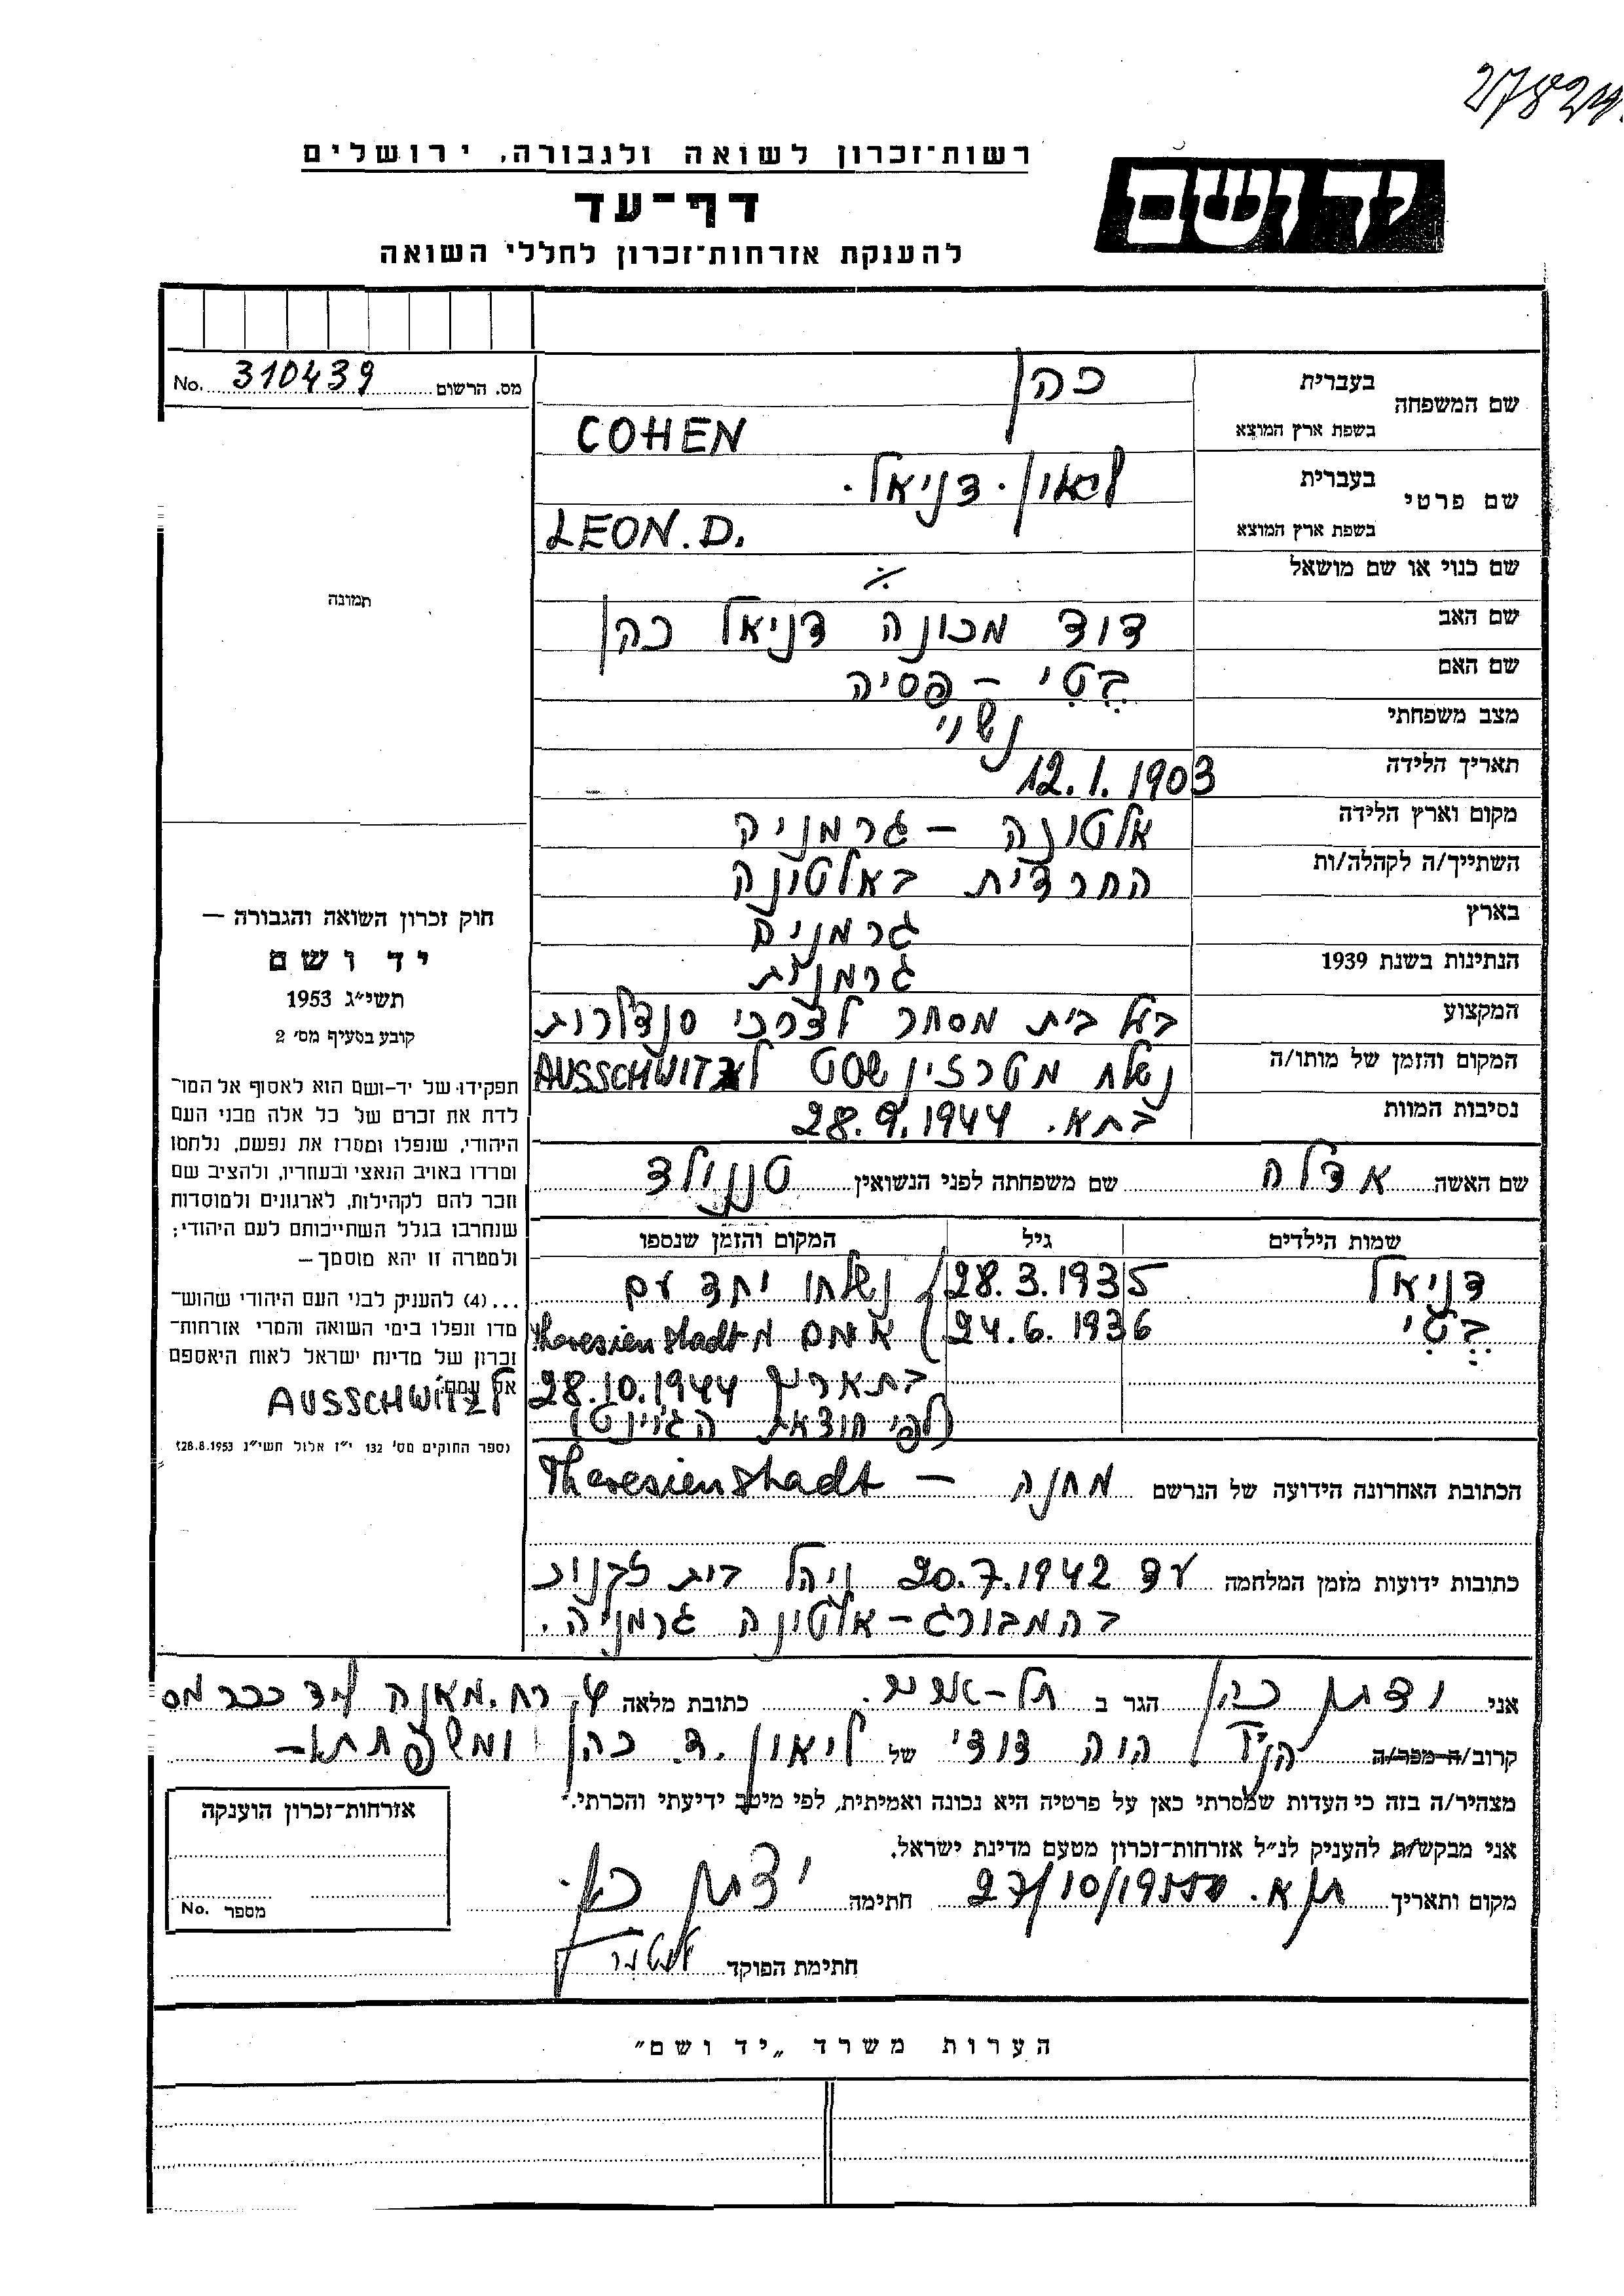 רשות־זכרון לשואה ולגבורה, ירושלים
יד ושם
דף־עד
להענקת אזרחות־זכרון לחללי השואה
מס. הרשום 310439 No.
שם המשפחה בעברית כהן
בשפת ארץ המוצא COHEN
שם פרטי בעברית ליאון. דניאל.
בשפת ארץ המוצא LEON. D.
שם כנוי או שם מושאל ./.
שם האב דוד מכונה דניאל כהן
שם האם בֶּטִי – פסיה
מצב משפחתי נשוי
תאריך הלידה 12.1.1903
מקום וארץ הלידה אלטונה – גרמניה
השתייך/ה לקהלה/ות החרדית באלטונה
בארץ גרמניה
הנתינות בשנת 1939 גרמנית
המקצוע בעל בית מסחר לצרכי סנדלרות
המקום והזמן של מותו/ה נשלח מטרזינשטט ל AUSSCHWITZ
נסיבות המוות בתא. 28.9.1944
שם האשה אדלה שם משפחתה לפני הנשואין
שמות הילדים גיל המקום והזמן שנספו
דניאל 28.3.1935 נשלחו יחד עם
בֶּטִי 24.6.1936 אמם מ Theresienstadt
בתאריך 28.10.1944 ל AUSSCHWITZ
(לפי הוצאת הג'וינט)
הכתובת האחרונה הידועה של הנרשם מחנה – Theresienstadt
כתובות ידועות מזמן המלחמה עד 20.7.1942 ניהל בית זקנות
בהמבורג – אלטונה גרמניה.
תמונה
חוק זכרון השואה והגבורה —
יד ושם
תשי״ג 1953
קובע בסעיף מס׳ 2
תפקידו של יד-ושם הוא לאסוף אל המו־
לדת את זכרם של כל אלה מבני העם
היהודי, שנפלו ומסרו את נפשם, נלחמו
ומרדו באויב הנאצי ובעוזריו, ולהציב שם
וזכר להם לקהילות, לארגונים ולמוסדות
שנחרבו בגלל השתייכותם לעם היהודי;
ולמטרה זו יהא מוסמך —
...(4) להעניק לבני העם היהודי שהוש־
מדו ונפלו בימי השואה והמרי אזרחות־
זכרון של מדינת ישראל לאות היאספם
אל עמם.
(ספר החוקים מס׳ 132 י״ז אלול תשי״ג 28.8.1953)
אני כהן הגר ב תל-אביב. כתובת מלאה
קרוב/ה מכר/ה הנ״ל היה דודי של ליאון. ד. כהן ומשפחתו –
מצהיר/ה בזה כי העדות שמסרתי כאן על פרטיה היא נכונה ואמיתית, לפי מיטב ידיעתי והכרתי.
אני מבקש/ת להעניק לנ״ל אזרחות־זכרון מטעם מדינת ישראל.
מקום ותאריך ת״א. חתימה
חתימת הפוקד
אזרחות־זכרון הוענקה
מספר No.
הערות משרד „יד ושם״